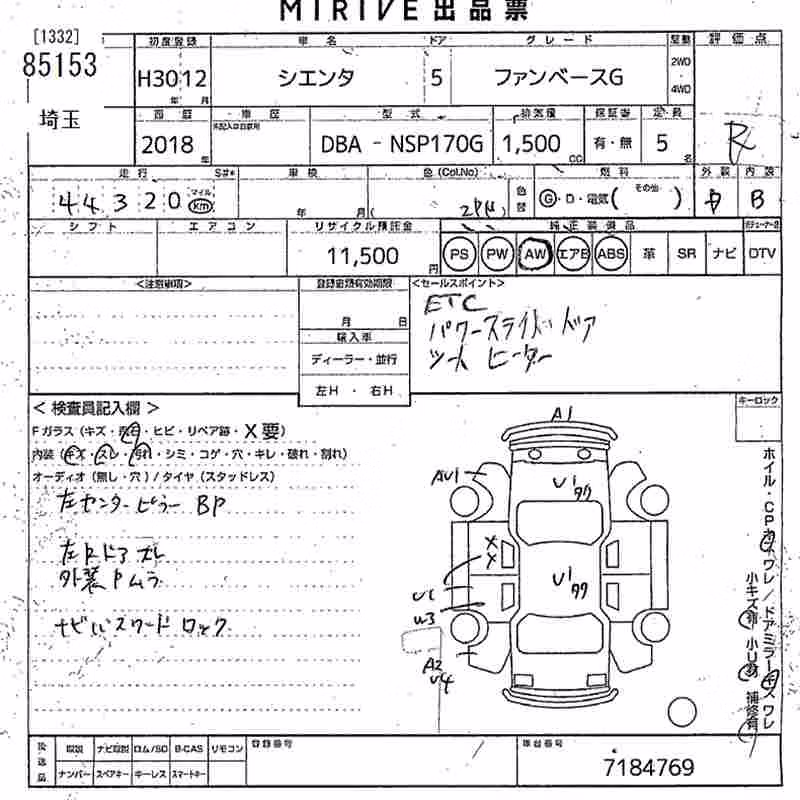 MIRIVE 出品票
[1332]
85153
埼玉
初度登録 車名 ドア グレード 駆動 評価点
H3012 年 月 シエンタ 5 ファンベースG 2WD ・ 4WD R
車歴 型式 排気量 保証書 定員
2018 年 DBA - NSP170G 1,500 CC 有・無 5 名
走行 S#* 車検 色(Col.No) 燃料 外装 内装
44320 マイル km 年 月 色替 G・D・電気( その他 ) B
シフト エアコン リサイクル預託金 純正装備品
11,500 円 PS PW AW エアB ABS 革 SR ナビ DTV
<注意事項> <セールスポイント>
月 日
輸入車
ディーラー・並行
左H ・ 右H
ETC
パワースライドドア
シートヒーター
< 検査員記入欄 > キーロック
Fガラス(キズ・飛石・ヒビ・リペア跡・X要)
内装(キズ・スレ・汚れ・シミ・コゲ・穴・キレ・破れ・割れ)
オーディオ(無し・穴)/タイヤ(スタッドレス)
左センターピラー BP
左Rドア ズレ
外装Pムラ
ナビパスワードロック
A1
AU1
U1
タワ
X
X
U1
タワ
U1
U3
A2
U4
ホイル・CPキズワレ/ドアミラーキズワレ
小キズ有 小U有 補修有
後送品 取説 ナビ取説 ロム/SD B-CAS リモコン 登録番号 車台番号
ナンバー スペアキー キーレス スマートキー 7184769